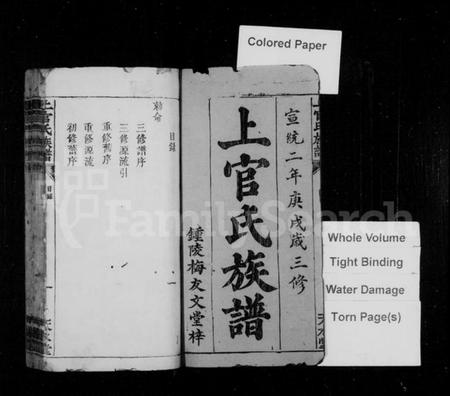 Colored Paper
宣統二年庚戌歲三修
上官氏族譜
鍾陵梅友文堂梓
上官氏族譜
目録
勅命
目録
三修譜序
三修源流引
重修舊序
重修源流
初修舊序
上官氏族譜
FamilySearch
Whole Volume
Tight Binding
Water Damage
Torn Page(s)